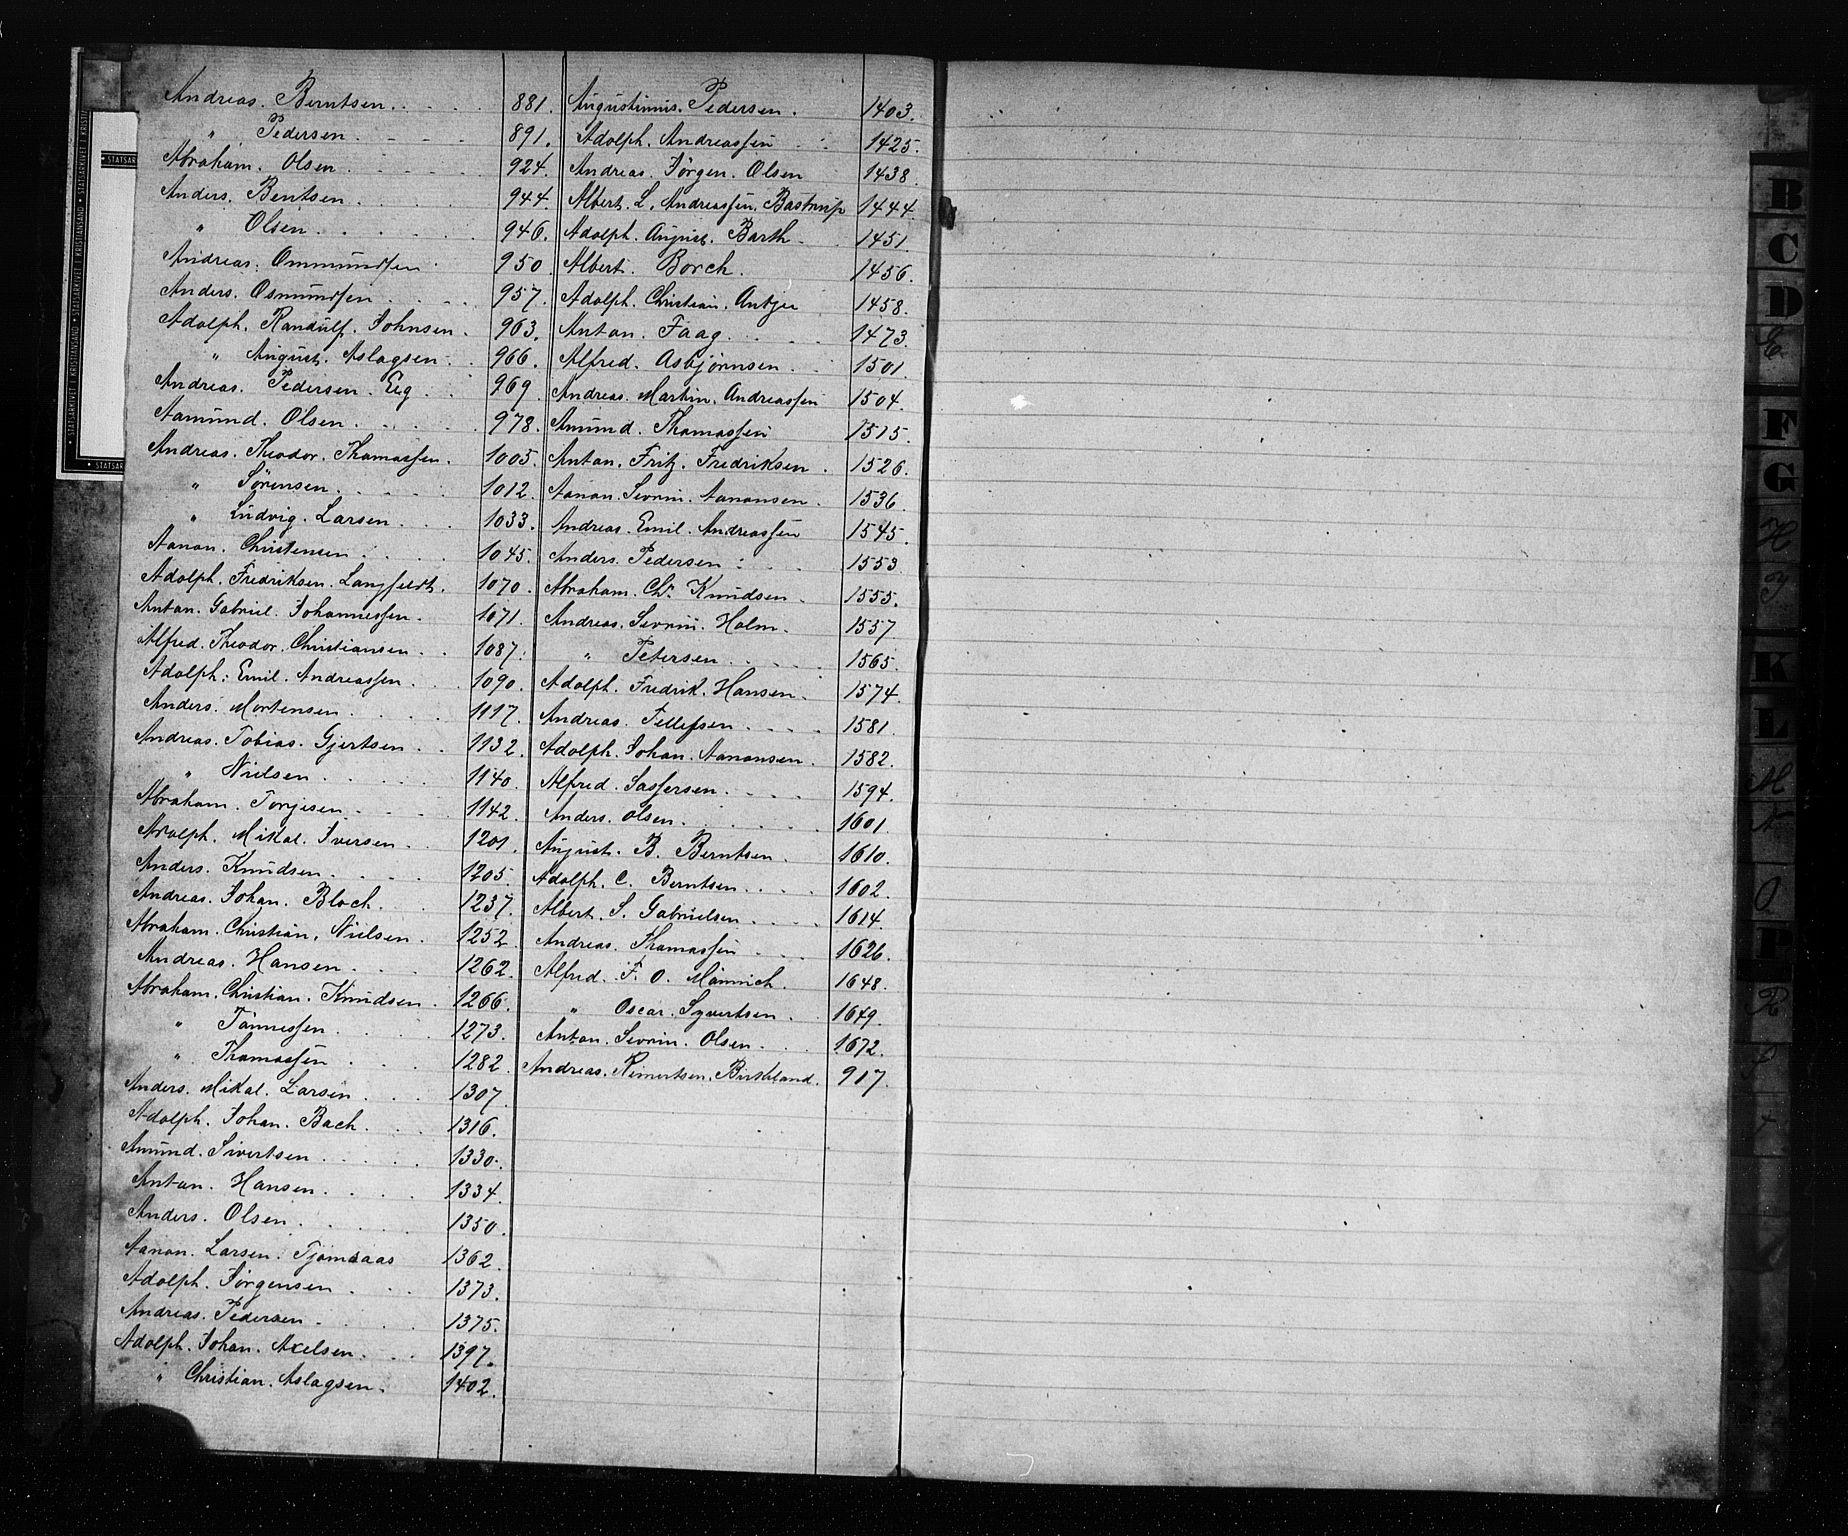 Andreas. Berntsen. . . . . 881.
" Pedersen. . . . . 891.
Abraham. Olsen. . . . . 924.
Anders. Bentsen. . . . . 944.
" Olsen. . . . . 946.
Andreas. Ommundsen. 950.
Anders. Osmundsen. . . . . 957.
Adolph. Randulf. Johnsen. 963.
" August. Aslagsen. . . 966.
Andreas. Pedersen. Eeg. . . 969.
Aamund. Olsen. . . . . 978.
Andreas. Theodor. Thomassen. 1005.
" Sörensen. . . . . 1012.
" Ludvig. Larsen. . . . 1033.
Aanon. Christensen. . . . 1045.
Adolph. Fredriksen. Langfeldt. 1070.
Anton. Gabriel. Johannessen. 1071.
Alfred. Theodor. Christiansen. . 1087.
Adolph. Emil. Andreassen. . . 1090.
Anders. Mortensen. . . . 1117.
Andreas. Tobias. Gjertsen. . . 1132.
" Nielsen. . . . . 1140.
Abraham. Torjesen. . . . 1142.
Adolph. Mikal. Iversen. . . 1201.
Anders. Knudsen. . . . 1205.
Andreas. Johan. Bloch. . . 1237.
Abraham. Christian. Nielsen. . 1252.
Andreas. Hansen. . . . 1262.
Abraham. Christian. Knudsen. . 1266.
" Tönnessen. . . . 1273.
" Thomassen. . . . 1282.
Anders. Mikal. Larsen. . . . 1307.
Adolph. Johan. Bach. . . . 1316.
Amund. Sivertsen. . . . 1330.
Anton. Hansen. . . . 1334.
Anders. Olsen. . . . . 1350.
Aanon. Larsen. Tjomsaas 1362.
Adolph. Jörgensen. . . . 1373.
Andreas. Pedersen. . . . 1375.
Adolph. Johan. Axelsen. . . . 1397.
" Christian. Aslagsen. 1402.
Augustinius. Pedersen. 1403.
Adolph. Andreassen . . 1425.
Andreas. Jörgen. Olsen 1438.
Albert. L. Andreassen. Bastrup 1444.
Adolph. August. Barth. . 1451.
Albert. Borch. 1456.
Adolph. Christian. 1458.
Anton. Faag. . . . . 1473.
Alfred. Asbjörnsen. . . 1501.
Andreas. Martin. Andreassen 1504.
Amund. Thomassen 1515.
Anton. Fritz. Fredriksen. 1526.
Aanon. Severin. Aanonsen. 1536.
Andreas. Emil. Andreassen 1545.
Anders. Pedersen. . . . 1553.
Abraham. Chr. Knudsen. 1555.
Andreas. Severin. Holm. . 1557
" Petersen. . . . . 1565.
Adolph. Fredrik. Hansen. 1574.
Andreas. Tellefsen. . . . 1581.
Adolph. Johan. Aanonsen. 1582.
Alfred. Sassersen. . . . 1594.
Anders. Olsen. . . . . 1601.
August. B. Berntsen. . 1610.
Adolph. C. Berntsen. . . . 1602.
Albert. S. Gabrielsen. . . . 1614.
Andreas. Thomassen . . . 1626.
Alfred. F. O. 1648.
" Oscar. Syvertsen. . 1649.
Anton. Severin. Olsen. . . . 1672.
Andreas. Reinertsen. Birkeland. 917.
B
C
D
E
F
G
H
K
L
M
N
O
R
STATSARKIVET I KRISTIANSAND • STATSARKIVET I KRISTIANSAND • STATSARKIVET I KRISTIANSAND